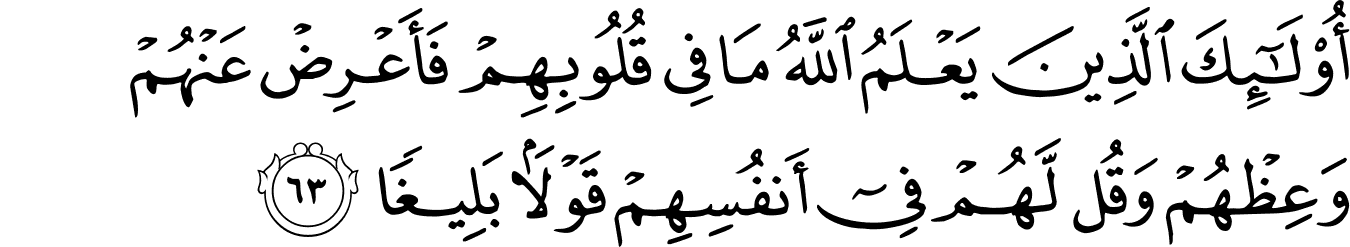 أُو۟لَـٰٓئِكَ ٱلَّذِينَ يَعْلَمُ ٱللَّهُ مَا فِى قُلُوبِهِمْ فَأَعْرِضْ عَنْهُمْ
وَعِظْهُمْ وَقُل لَّهُمْ فِىٓ أَنفُسِهِمْ قَوْلًۢا بَلِيغًا ٦٣